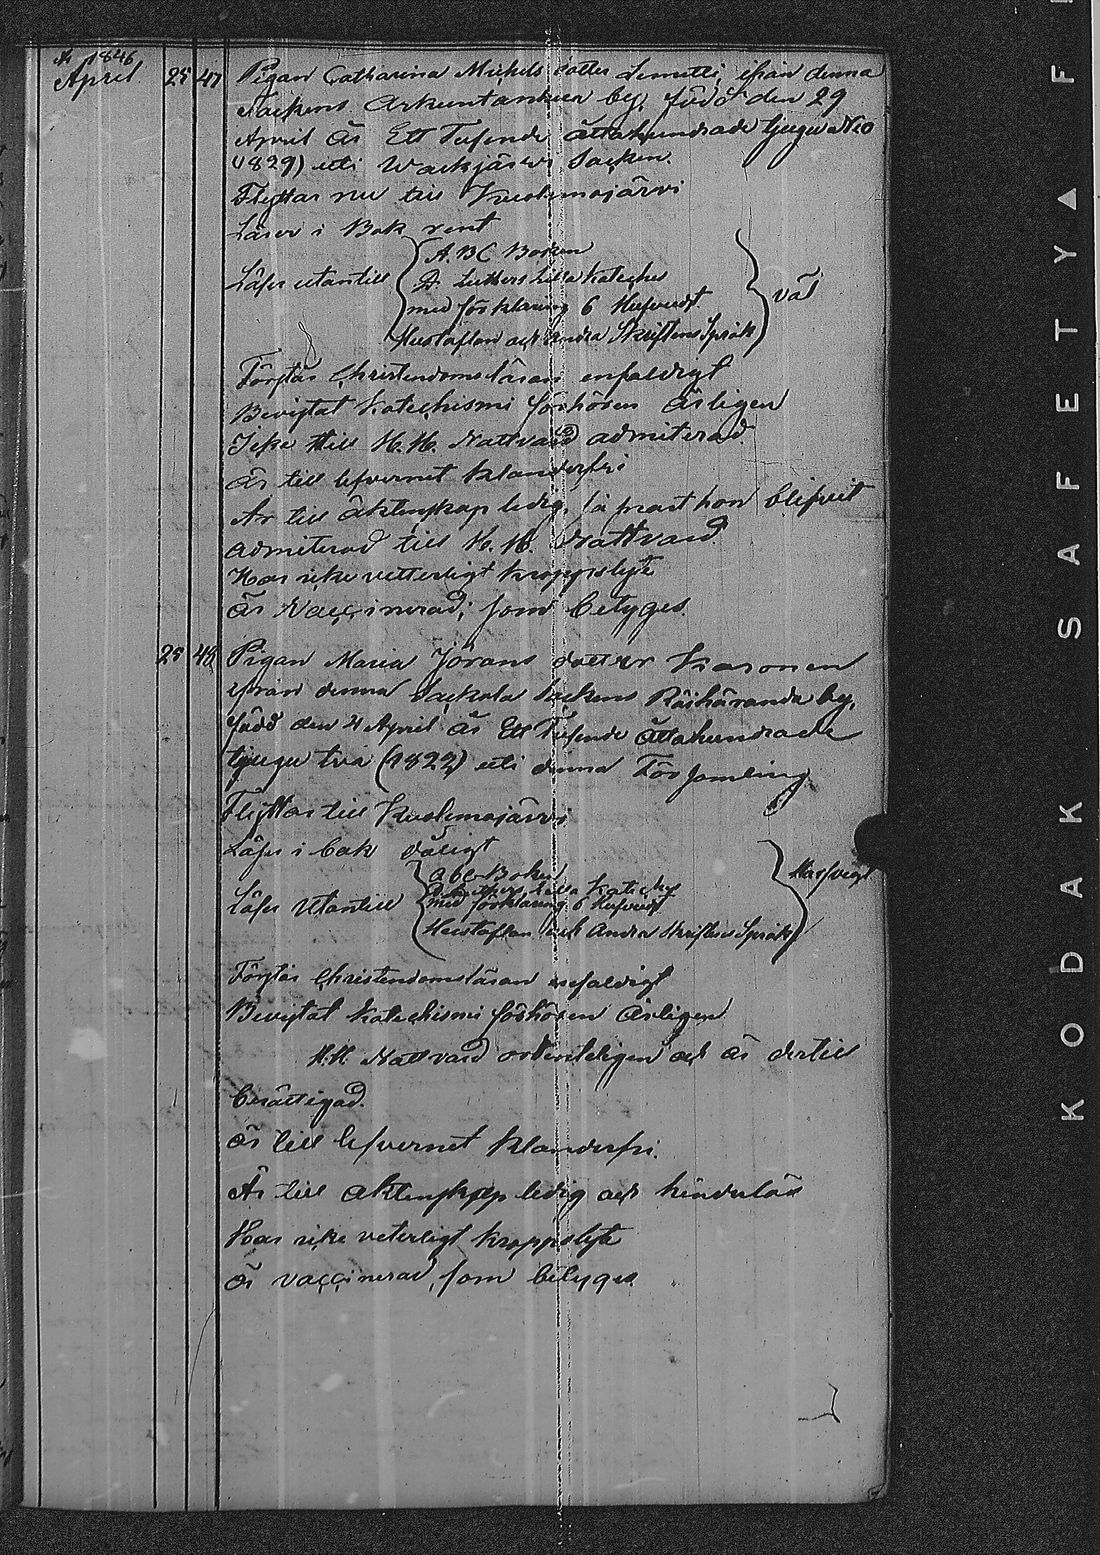 År 1846
April 25 47 Pigan Catharina Michels dotter Lemetti, ifrån denna
Sockens by, född den 29
April år Ett Tusende åttahundrade tjugu Nio
(1829) uti Walkjärvi Socken.
Flyttas nu till Kuolemajärvi
Läser i Bok rent
A.BC Boken
Läser utantill D. Luthers Lilla Kateches väl
med förklaring 6 Hufvudst.
Hustaflan och Andra Skriftens Språk
Förstår Christendomsläran enfaldigt
Bevistat Katechismi förhören Årligen
Icke till H.H. Nattvard admiterad
är till lefvernet klanderfri
Är till äktenskap ledig, så snart hon blifvit
admiterad till H.H. Nattvard
Har icke vetterligt kroppslyte
är Vaccinerad; som betyges.
25 48 Pigan Maria Jörans dotter Kasonen
ifrån denna Sackola Sockens Röihäranda by,
född den 4 April år Ett Tusende åttahundrade
tjugu två (1822) uti denna Församling
Flyttas till Kuolemajärvi
Läser i bok dåligt
abc Boken Hasfvigt
D. Luthers Lilla Kateches
Läser Utantill med förklaring 6 Hufvudst
Hustaflan och Andra Skriftens Språk
Förstår Christendomsläran enfaldigt
Bevistat Katechismi förhören Årligen
H.H. Nattvard ordenteligen och är dertill
berättigad.
är till lefvernet klanderfri.
Är till äktenskap ledig och hinderlös
Har icke veterligt kroppslyte
är vaccinerad, som betyges.
KODAK SAFETY ▲ F